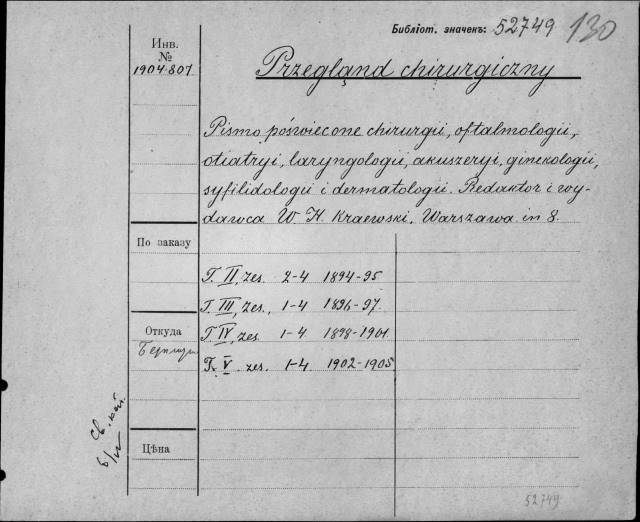 Библіот. значекъ: 52749 130
Инв.
№
1904.807
Przegląnd chirurgiczny
Pismo poświecone chirurgii, oftalmologii,
otiatryi, laryngologii, akuszeryi, ginekologii,
syfilidologii i dermatologii. Redaktor i wy-
dawca W. H. Kraewski. Warszawa. in 8.
По заказу
T. II, zes. 2-4 1894-95
T. III, zes., 1-4 1896-97.
Откуда
T. IV, zes. 1-4 1898-1901
T. V. zes. 1-4 1902-1905
Цѣна
52749